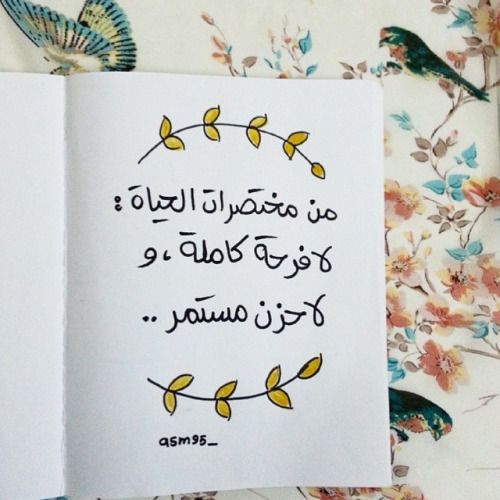 من مختصرات الحياة :
لا فرحة كاملة ، و
لا حزن مستمر ..
asm95_